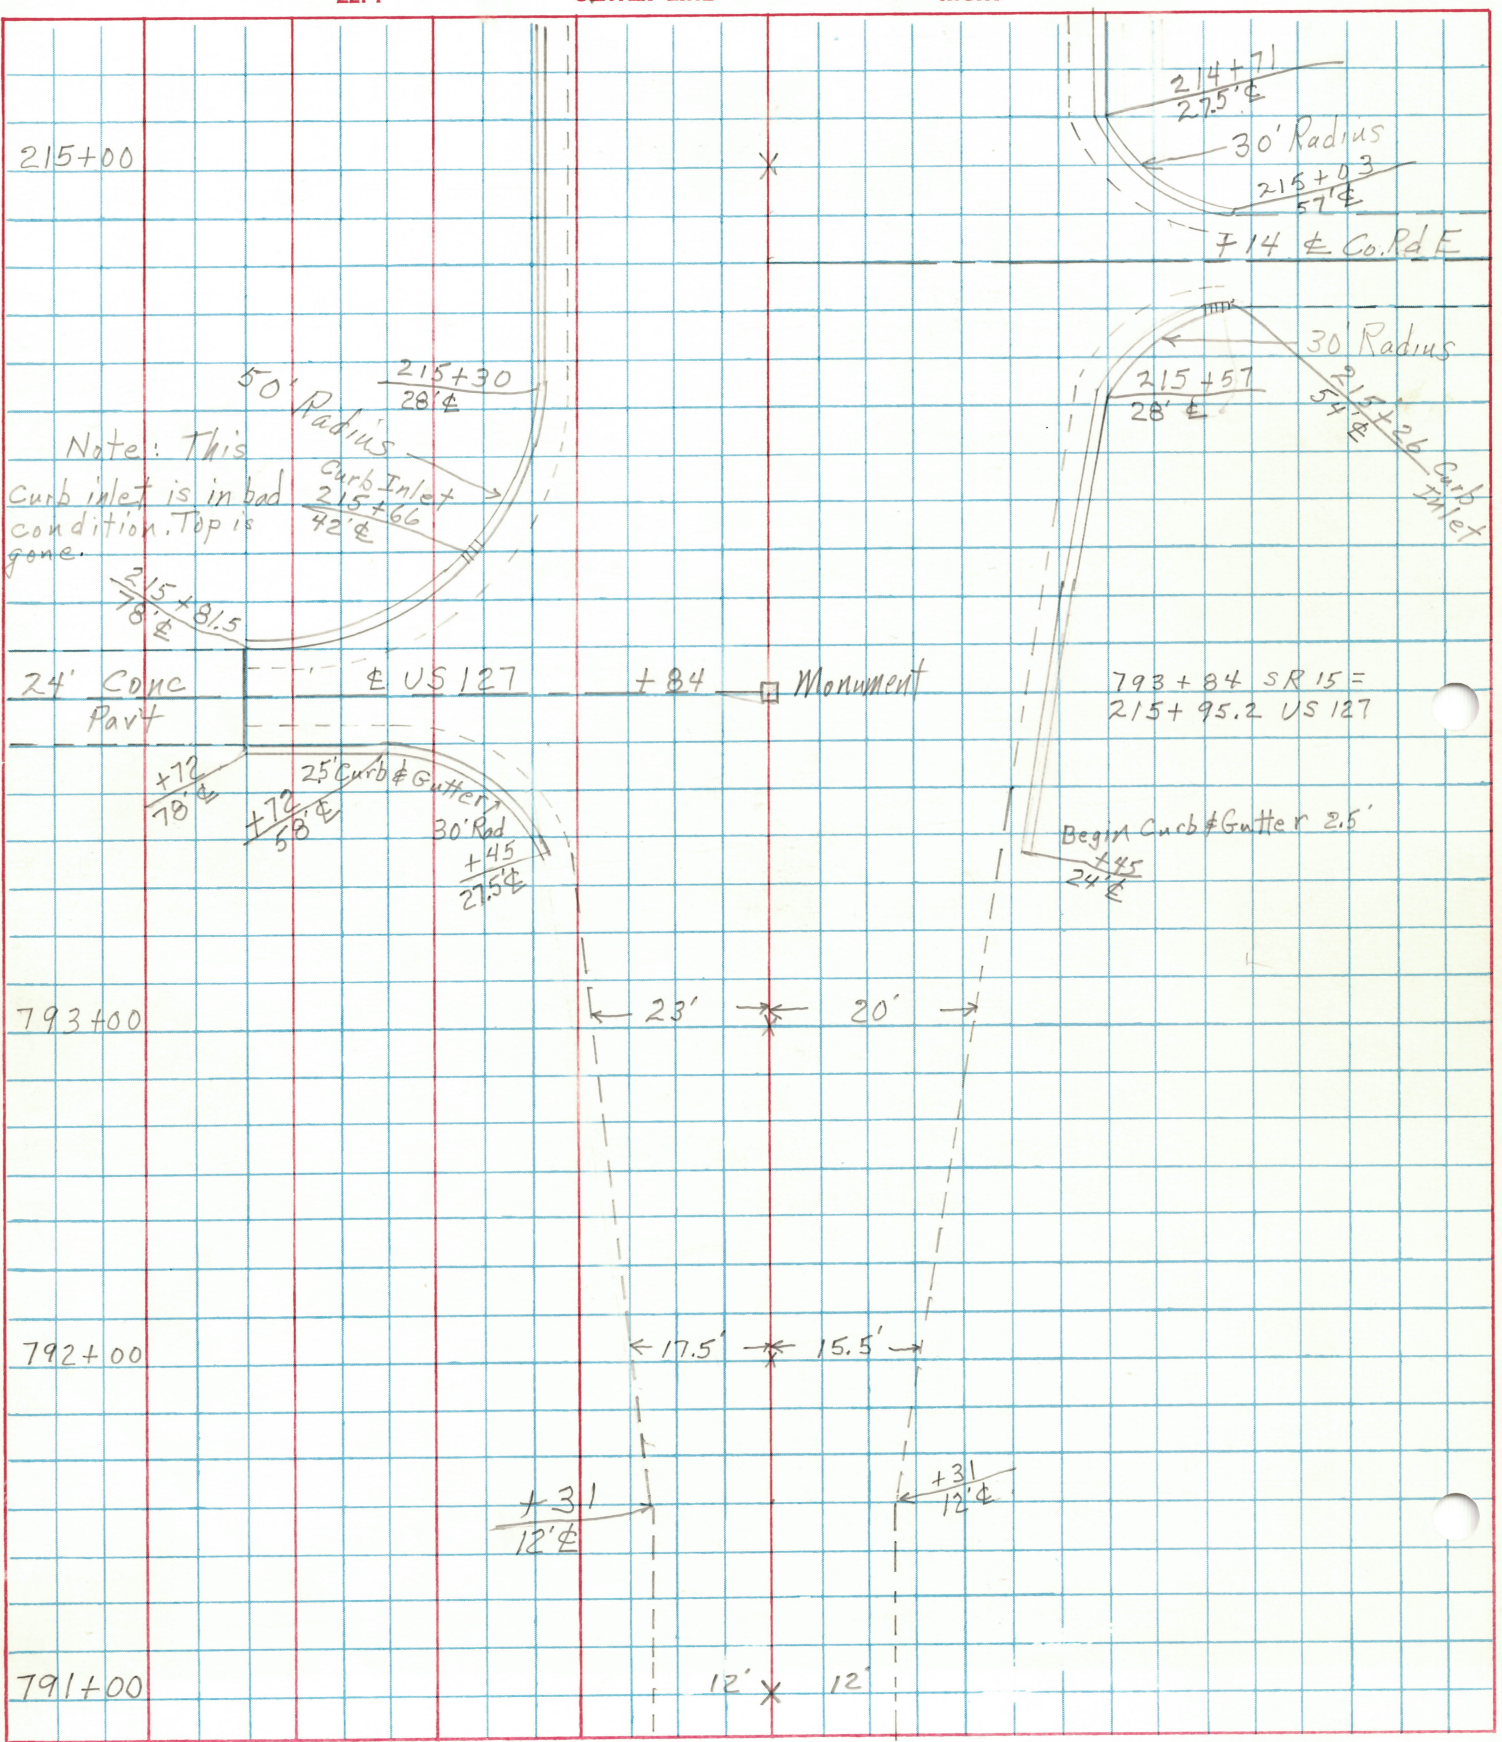 214+71
27.5' ℄
30' Radius
215+00
215+03
57' ℄
+14 ℄ Co. Rd E
30' Radius
50' Radius
215+30
28' ℄
215+57
28' ℄
215+26 Curb
54' ℄
Inlet
Note: This
Curb inlet is in bad
condition. Top is
gone.
Curb Inlet
215+66
42' ℄
215+81.5
78' ℄
24' Conc
Pav't
℄ US 127
+84
Monument
793+84 SR 15 =
215+95.2 US 127
+72
78' ℄
+72
58' ℄
Curb & Gutter
30' Rad
+45
27.5' ℄
Begin Curb & Gutter 2.5'
+45
24' ℄
793+00
23'
20'
792+00
17.5'
15.5'
+31
12' ℄
+31
12' ℄
791+00
12'
12'